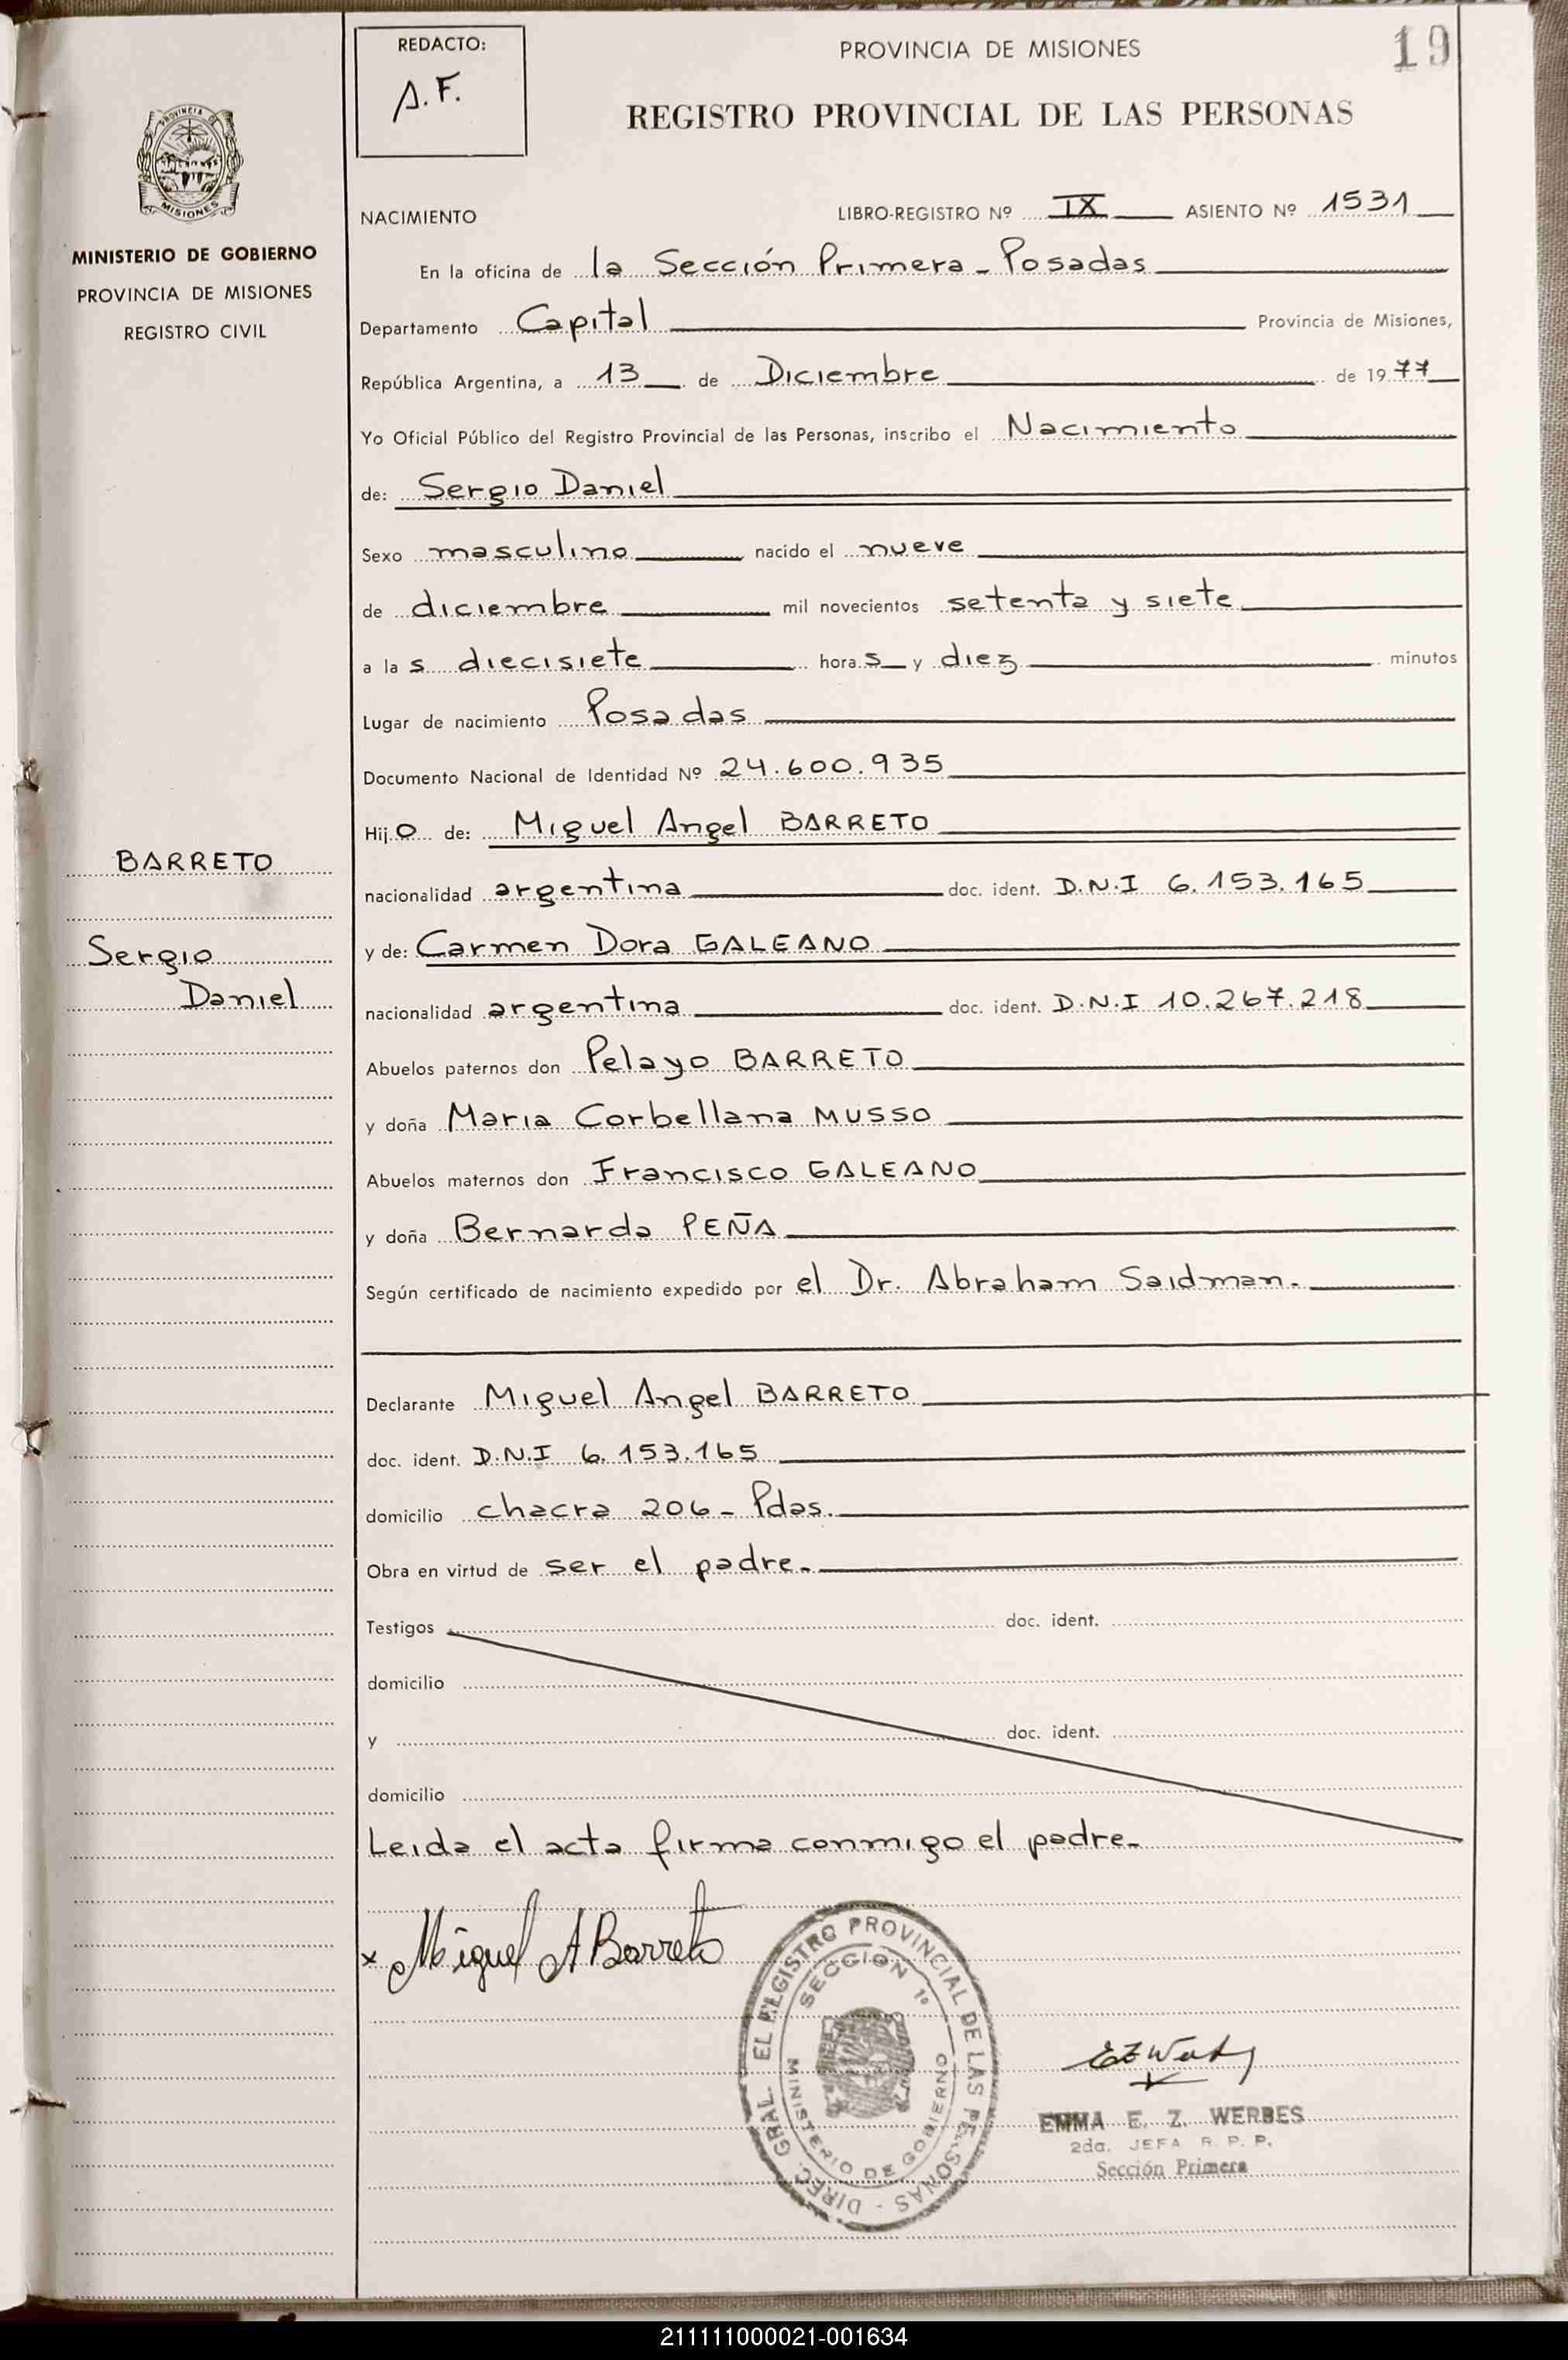 REDACTO:
A.F.
PROVINCIA DE MISIONES
19
REGISTRO PROVINCIAL DE LAS PERSONAS
PROVINCIA DE
MISIONES
MINISTERIO DE GOBIERNO
PROVINCIA DE MISIONES
REGISTRO CIVIL
NACIMIENTO LIBRO-REGISTRO Nº IX ASIENTO Nº 1531
En la oficina de la Sección Primera - Posadas
Departamento Capital Provincia de Misiones,
República Argentina, a 13 de Diciembre de 1977
Yo Oficial Público del Registro Provincial de las Personas, inscribo el Nacimiento
de: Sergio Daniel
Sexo masculino nacido el nueve
de diciembre mil novecientos setenta y siete
a las diecisiete horas y diez minutos
Lugar de nacimiento Posadas
Documento Nacional de Identidad Nº 24.600.935
Hijo de: Miguel Angel BARRETO
BARRETO
nacionalidad argentina doc. ident. D.N.I 6.153.165
Sergio
Daniel
y de: Carmen Dora GALEANO
nacionalidad argentina doc. ident. D.N.I 10.267.218
Abuelos paternos don Pelayo BARRETO
y doña Maria Corbellana MUSSO
Abuelos maternos don Francisco GALEANO
y doña Bernarda PEÑA
Según certificado de nacimiento expedido por el Dr. Abraham Saidman.
Declarante Miguel Angel BARRETO
doc. ident. D.N.I 6.153.165
domicilio chacra 206 - Pdas.
Obra en virtud de ser el padre.
Testigos doc. ident.
domicilio
y doc. ident.
domicilio
Leida el acta firma conmigo el padre.
x Miguel A Barreto
DIREC. GRAL. EL REGISTRO PROVINCIAL DE LAS PERSONAS -
SECCION 1º
MINISTERIO DE GOBIERNO
EMMA E. Z. WERBES
2da. JEFA R. P. P.
Sección Primera
211111000021-001634